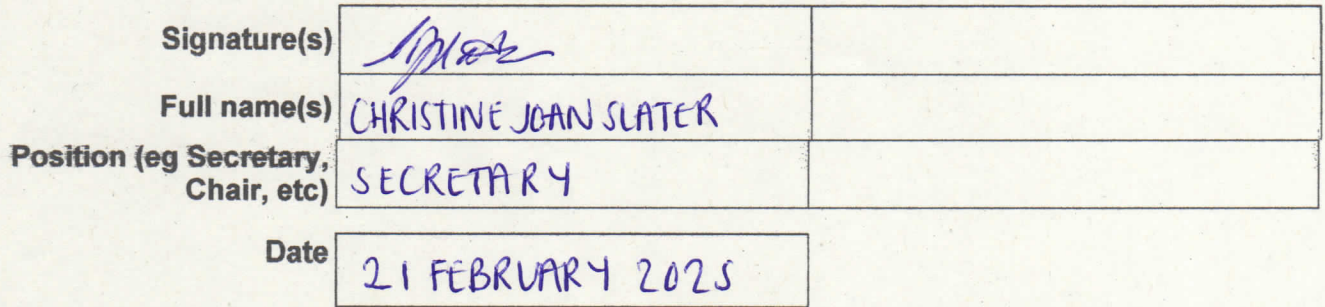 Signature(s)
Full name(s) CHRISTINE JOAN SLATER
Position (eg Secretary,
Chair, etc) SECRETARY
Date 21 FEBRUARY 2025